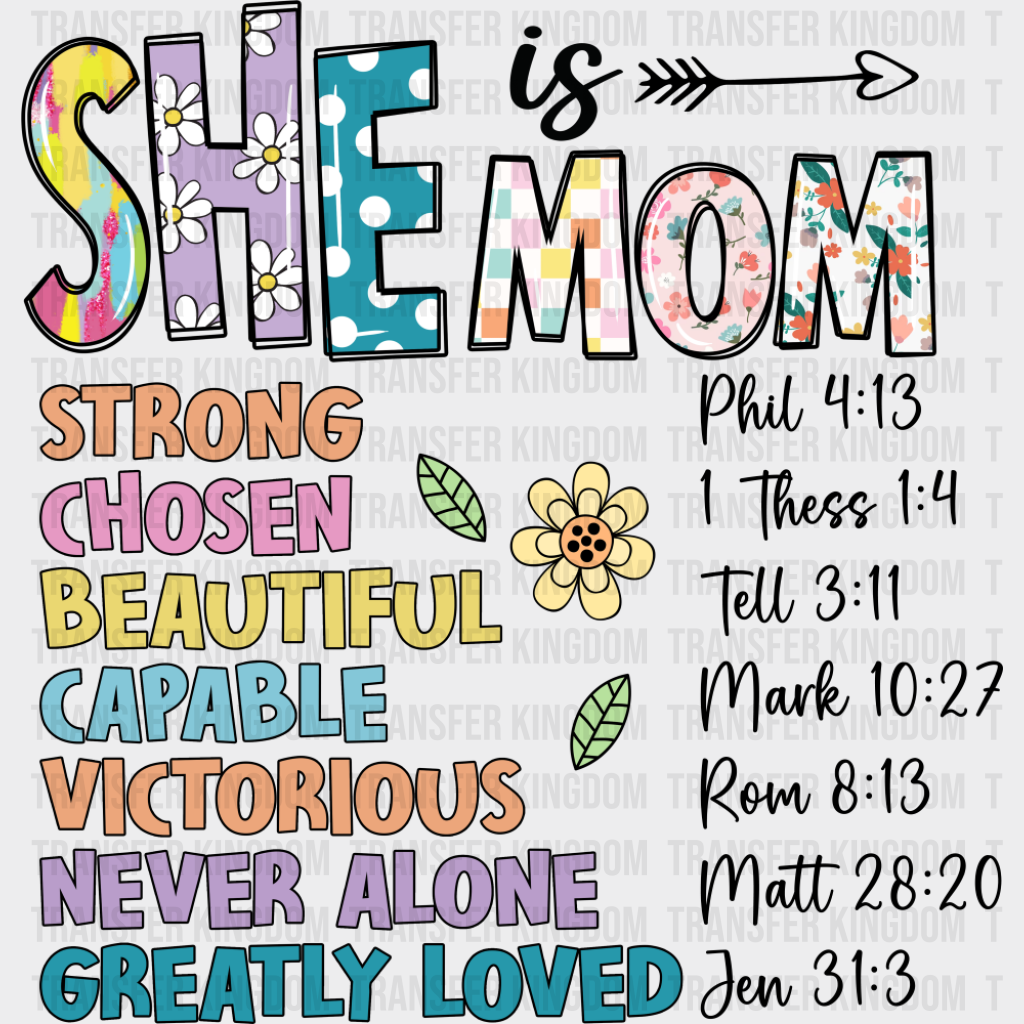 SHE is MOM
STRONG Phil 4:13
CHOSEN 1 Thess 1:4
BEAUTIFUL Tell 3:11
CAPABLE Mark 10:27
VICTORIOUS Rom 8:13
NEVER ALONE Matt 28:20
GREATLY LOVED Jen 31:3
TRANSFER KINGDOM